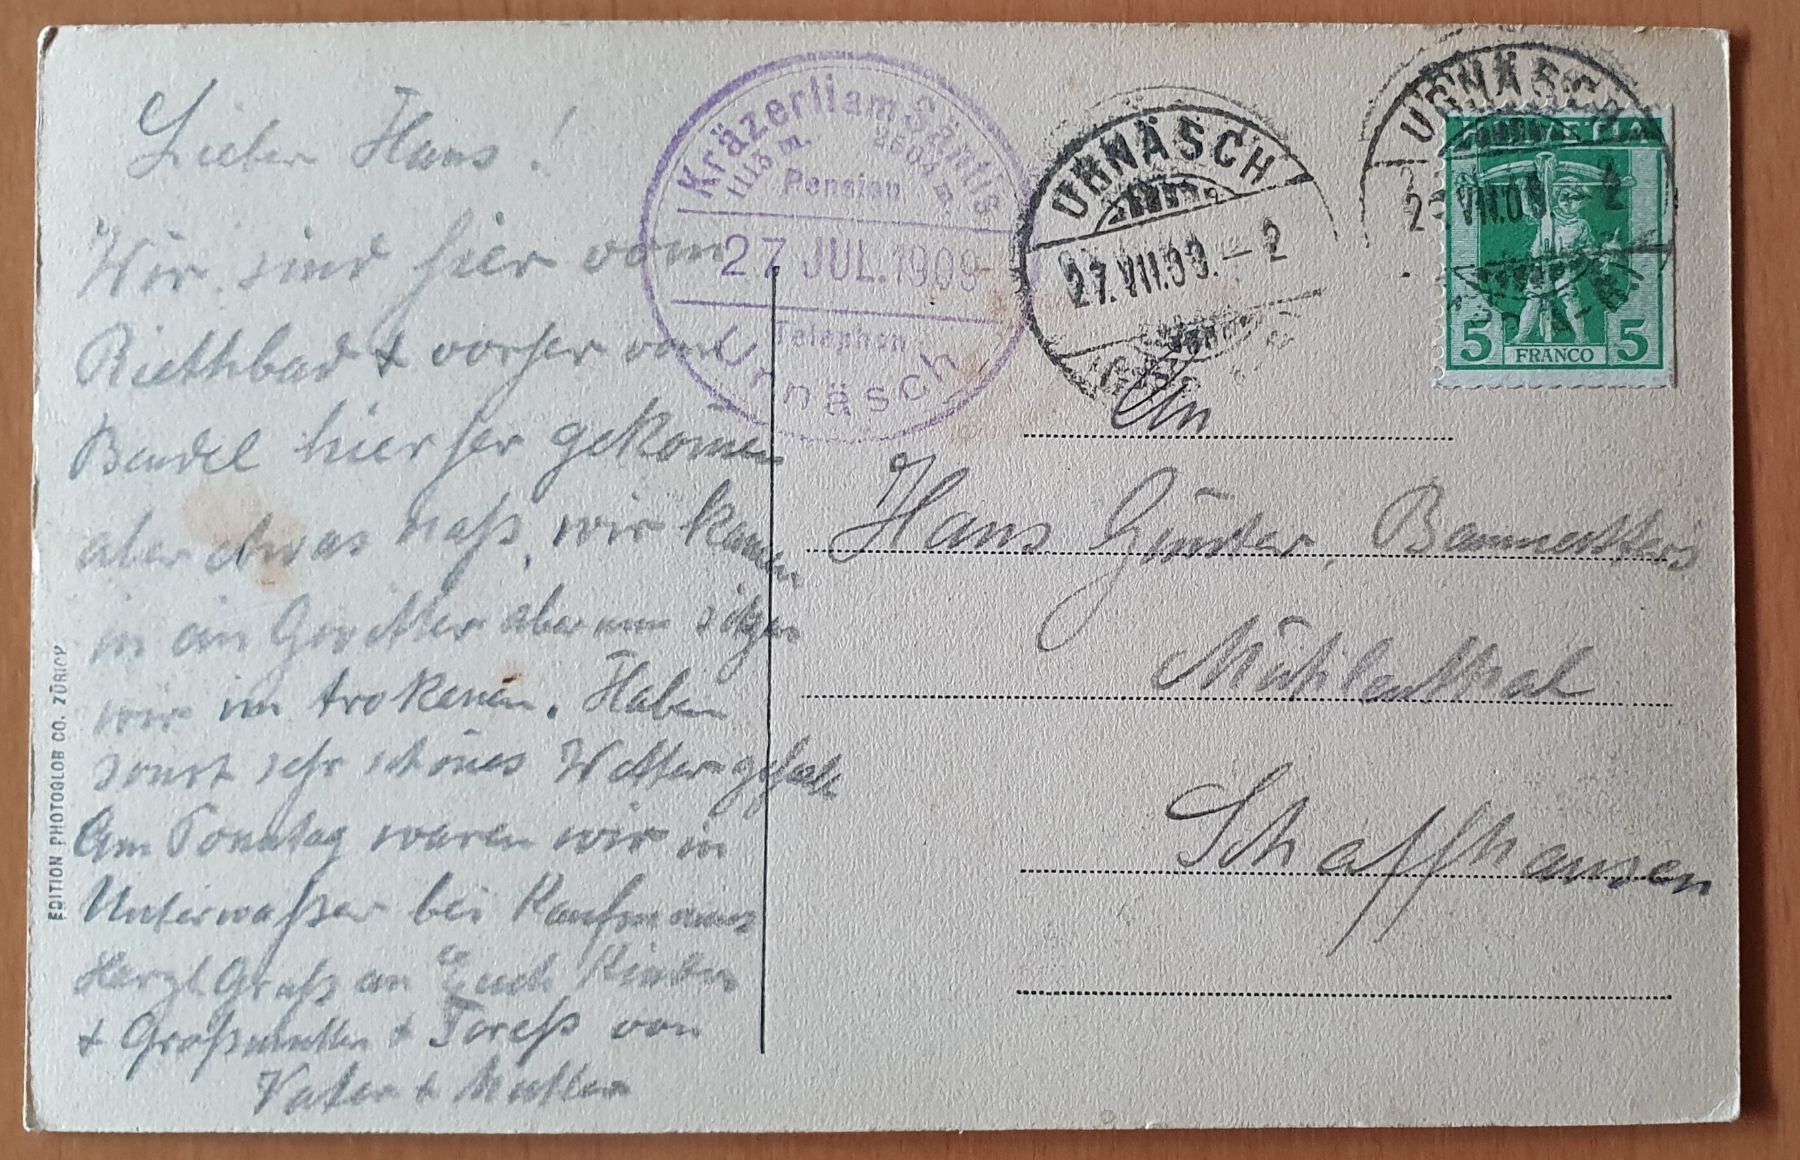 Lieber Hans!
Wir sind hier vom
Riethbad & vorher vom
Bendel hierher gekom̄en
aber etwas naß, wir kamen
in ein Gewitter aber nun sitzen
wir im trokenen. Haben
sonst sehr schönes Wetter gehabt
Am Sonntag waren wir in
Unterwaßer bei Kaufmanns
Herzl. Gruß an Euch Kinder
& Großmutter & von
Vater & Mutter
EDITION PHOTOGLOB CO. ZÜRICH
Kräzerli am Säntis
1113 m. 2504 m.
Pension
27 JUL. 1909
Telephon
Urnäsch
URNÄSCH
27.VII.09.–2
URNÄSCH
27.VII.09.–2
HELVETIA
5 FRANCO 5
An
Hans
Mühlenthal
Schaffhausen